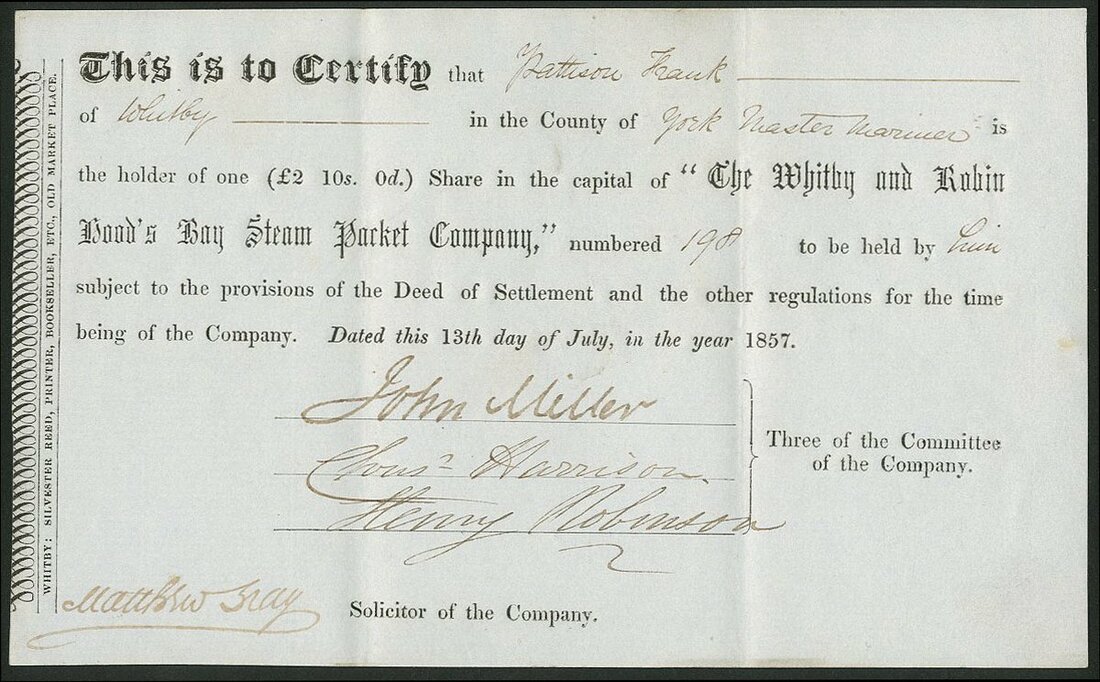 This is to Certify that Pattison Hank
of Whitby in the County of York Master Mariner is
the holder of one (£2 10s. 0d.) Share in the capital of "The Whitby and Robin
Hood's Bay Steam Packet Company," numbered 198 to be held by him
subject to the provisions of the Deed of Settlement and the other regulations for the time
being of the Company. Dated this 13th day of July, in the year 1857.
John Miller
Harrison.
Henry Robinson
Three of the Committee
of the Company.
Matthew Gray
Solicitor of the Company.
WHITBY: SILVESTER REED, PRINTER, BOOKSELLER, ETC., OLD MARKET PLACE.